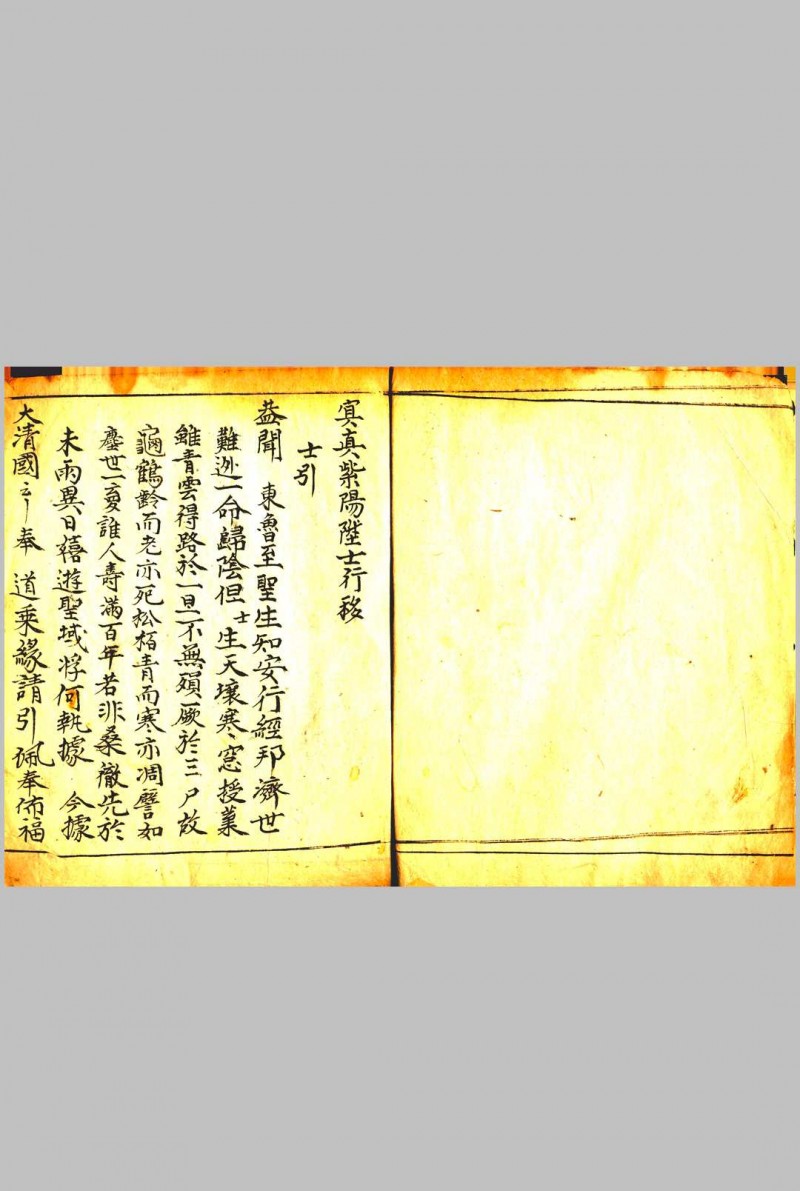 冥真紫陽陞士行移
士引
益聞 東魯至聖生知安行經邦濟世
難逃一命歸陰但士生天壤寒窓授業
雖青雲得路於一旦不無殞厥於三尸故
龜鶴齡而老亦死松栢青而寒亦凋譬如
塵世一夏誰人壽滿百年若非桑徹先於
未雨異日禧遊聖域將何執據 今據
大清國云奉 道乘緣請引佩奉佈福